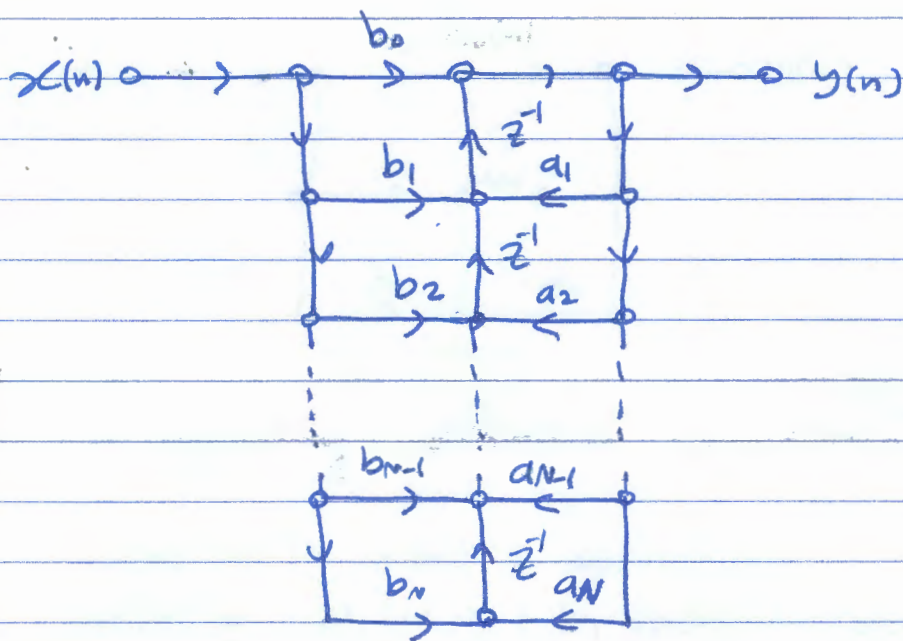 b₀
x(n) y(n)
z⁻¹
b₁ a₁
z⁻¹
b₂ a₂
b_{N-1} a_{N-1}
z⁻¹
b_N a_N